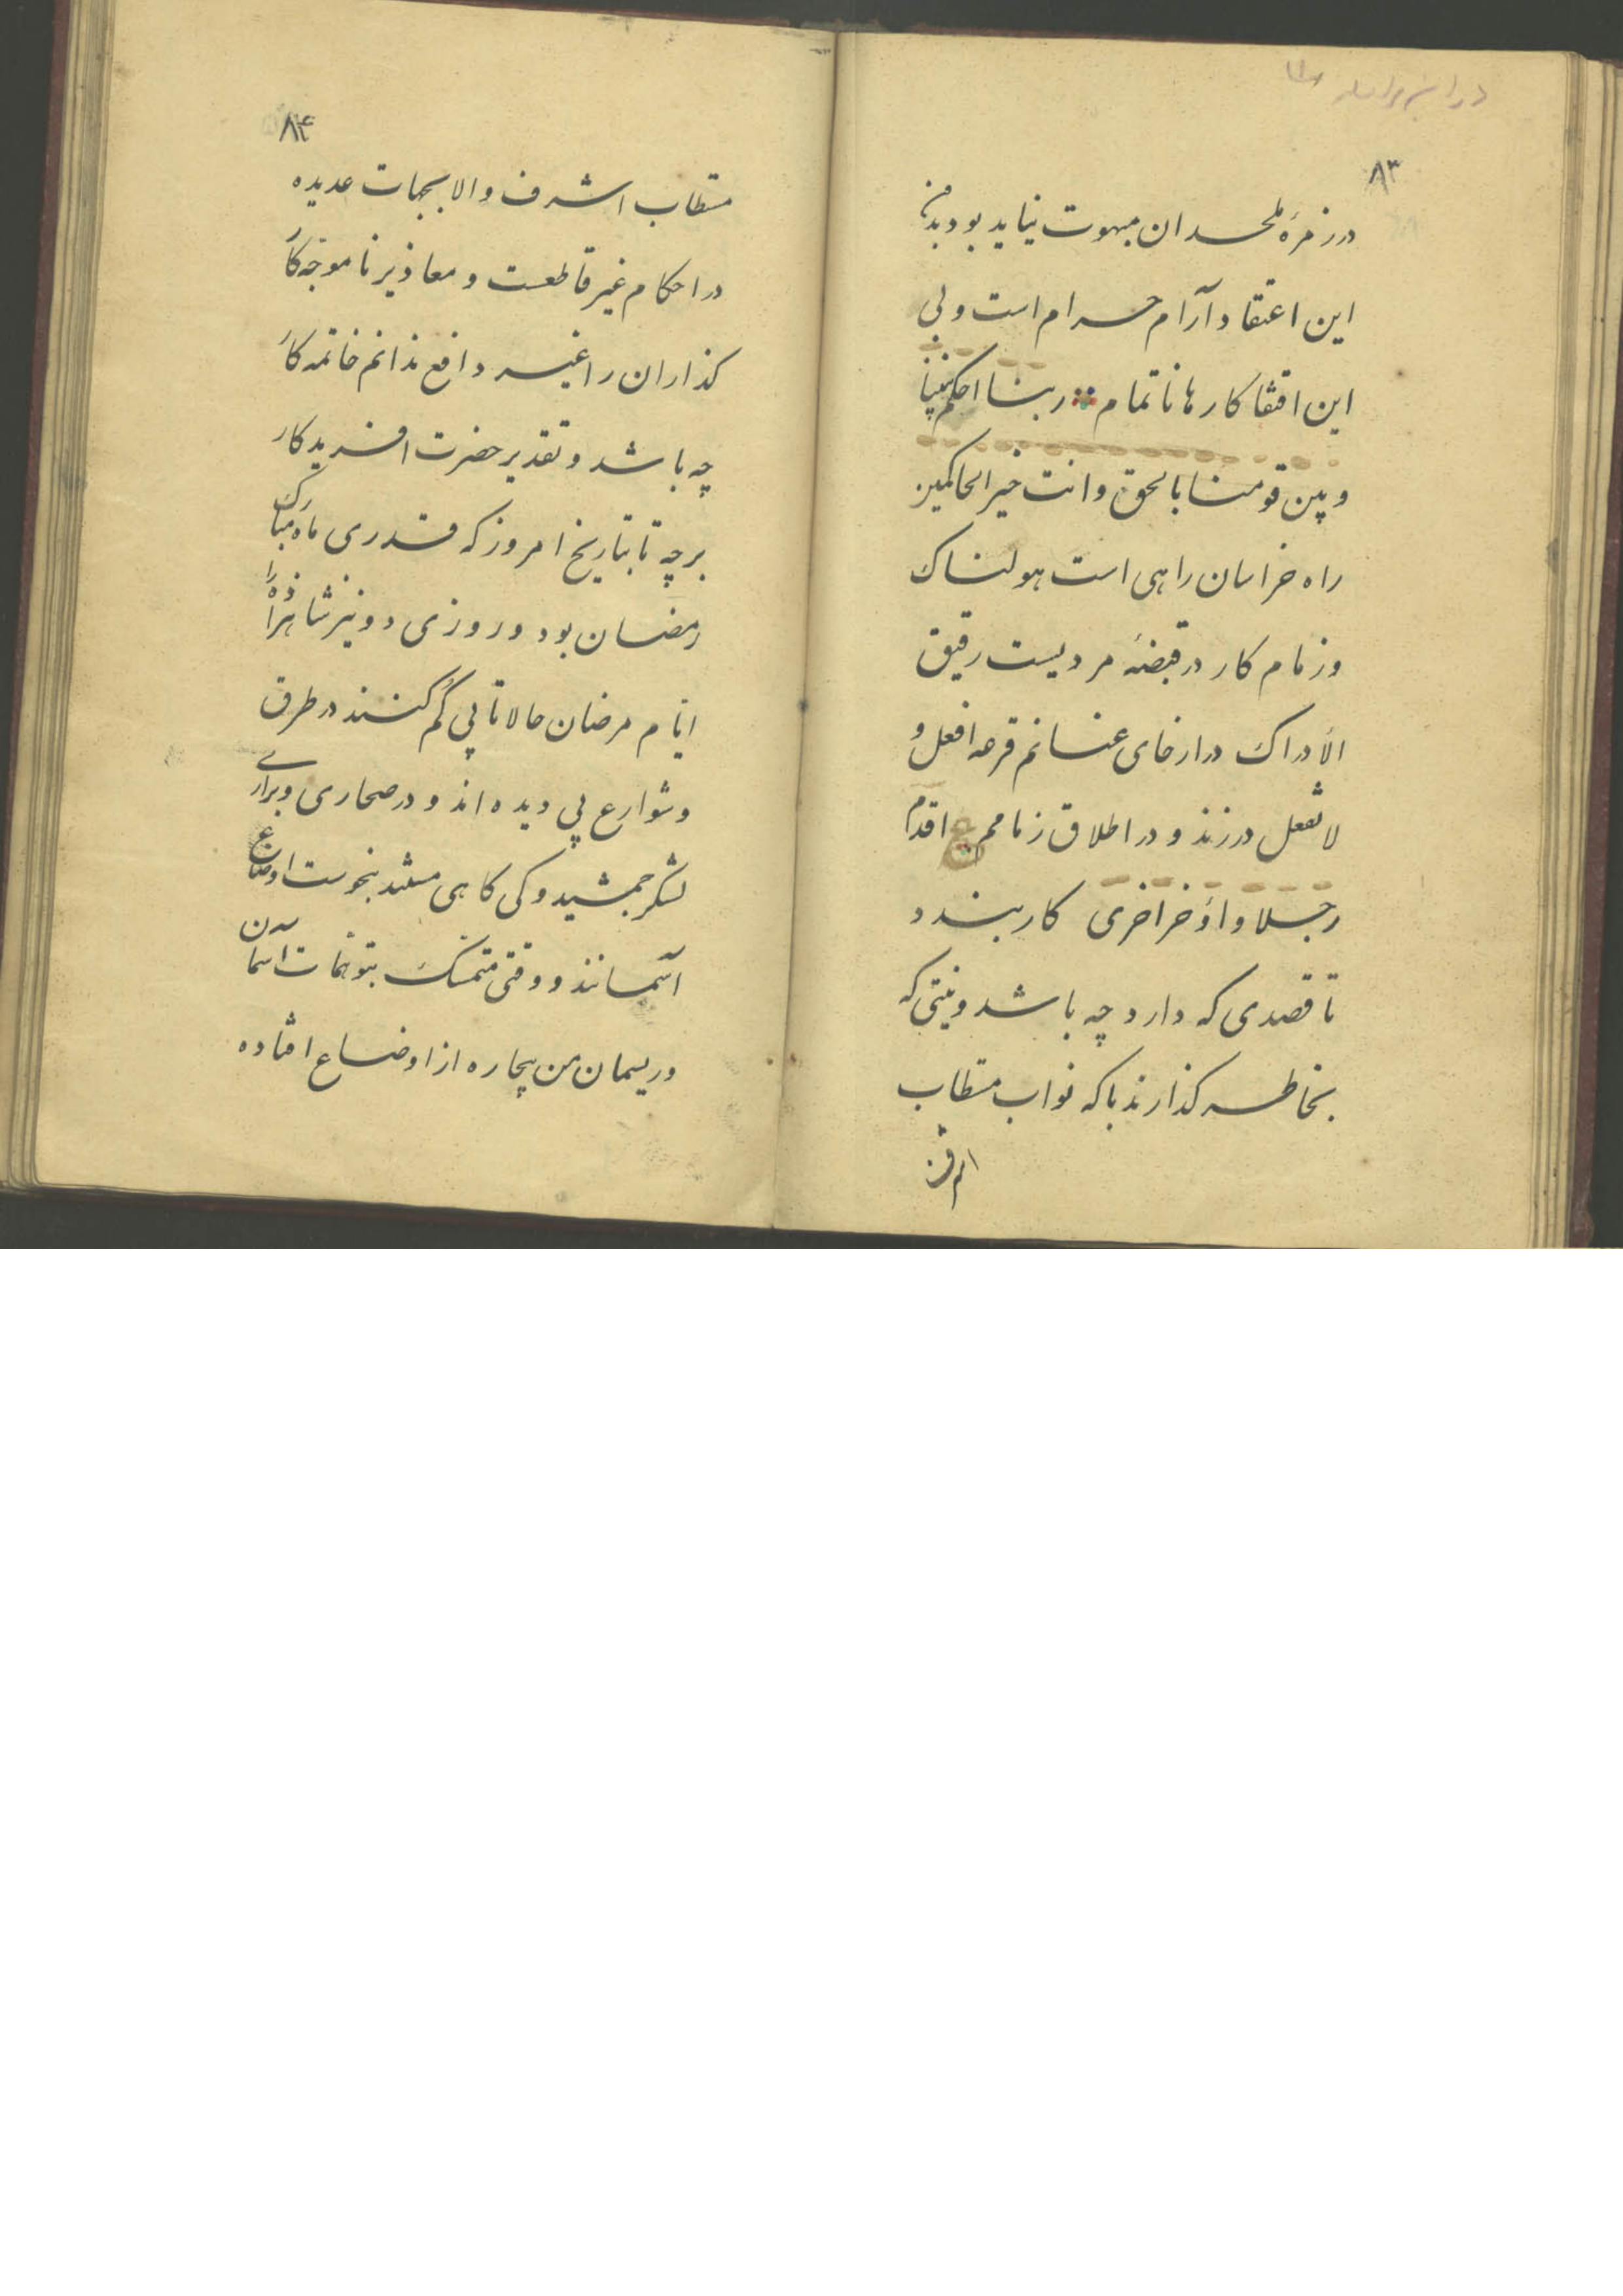 ۸۳
در زمرهٔ ملحدان مبهوت نباید بود بدین
این اعتقاد آرام حرام است و بی
این اقتفا کارها ناتمام ربنا احکم بیننا
و بین قومنا بالحق و انت خیر الحاکمین
راه خراسان راهی است هولناک
و زمام کار در قبضهٔ مردیست رقیق
الادراک در ارخای عنانم قرعه افعل و
لا تفعل در زند و در اطلاق زمامم اقدم
رجلا و اوخر اخری کار بندد
تا قصدی که دارد چه باشد و نیتی که
بخاطر گذارند با که نواب مستطاب
اشرف
۸۴
مستطاب اشرف والا بجهات عدیده
در احکام غیر قاطعست و معاذیر ناموجه کار
گذاران را غیر دافع ندانم خاتمه کار
چه باشد و تقدیر حضرت افریدگار
بر چه تا بتاریخ امروز که قدری ماه مبارک
رمضان بود و روزی دو نیز شاهزاده
ایام مرضان حالا تا پی گم کنند در طرق
و شوارع پی دیده اند و در صحاری و براری
لشگر جمشید و کی گاهی بنحوست اوضاع
آسمانند و وقتی متمسک بتوهمات آسمان
و ریسمان من بیچاره از اوضاع افتاده